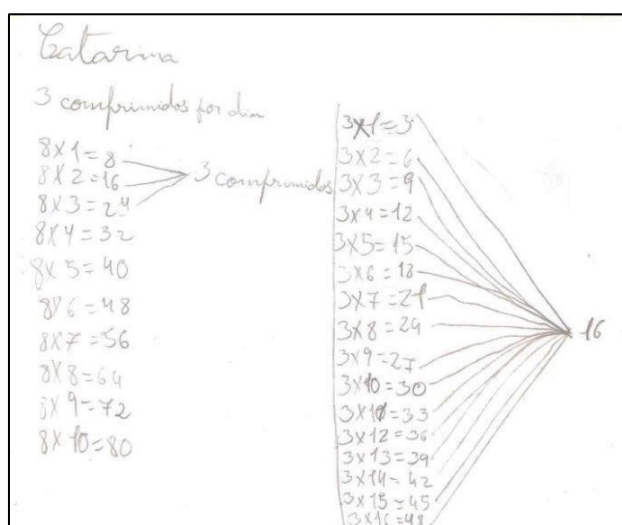 Catarina
3 comprimidos por dia
8x1=8
8x2=16
8x3=24
3 comprimidos
8x4=32
8x5=40
8x6=48
8x7=56
8x8=64
8x9=72
8x10=80
3x1=3
3x2=6
3x3=9
3x4=12
3x5=15
3x6=18
3x7=21
3x8=24
3x9=27
3x10=30
3x11=33
3x12=36
3x13=39
3x14=42
3x15=45
3x16=48
16